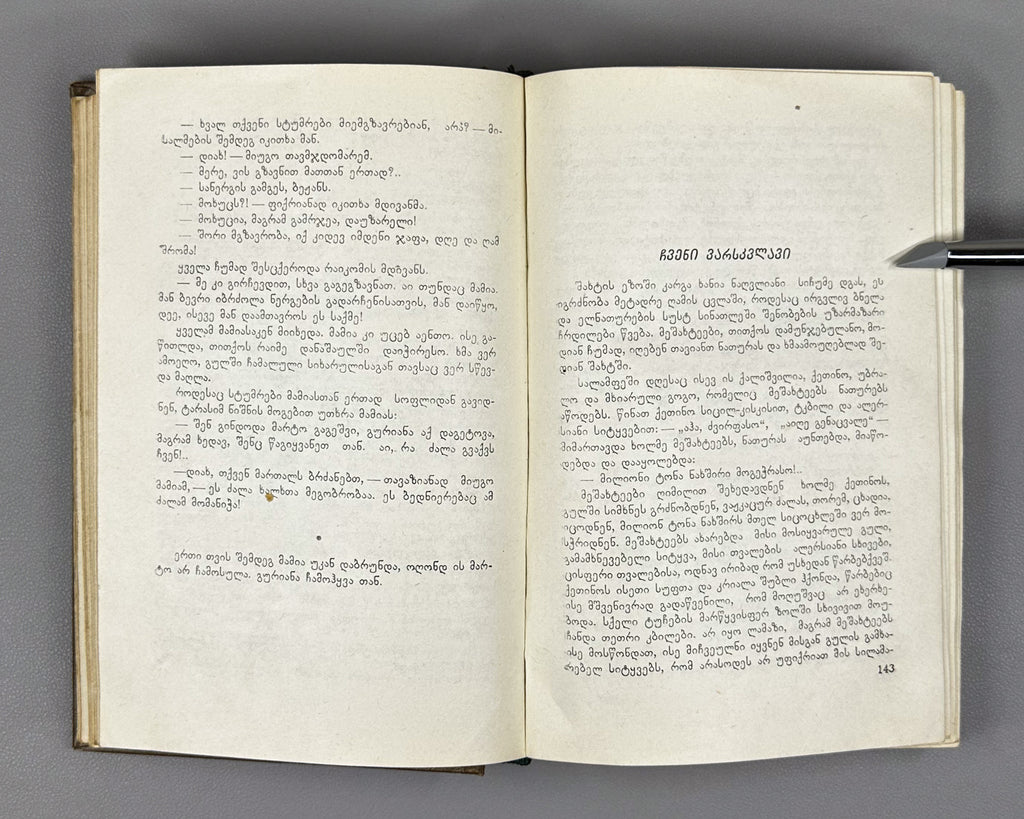 — ხვალ თქვენი სტუმრები მიემგზავრებიან, არა? — მი-
სალმების შემდეგ იკითხა მან.
— დიახ! — მიუგო თავმჯდომარემ.
— მერე, ვის გზავნით მათთან ერთად?..
— სანერგის გამგეს, ბეჟანს.
— მოხუცს?! — ფიქრიანად იკითხა მდივანმა.
— მოხუცია, მაგრამ გამრჯეა, დაუზარელი!
— შორი მგზავრობა, იქ კიდევ იმდენი ჯაფა, დღე და ღამ
შრომა!
ყველა ჩუმად შესცქეროდა რაიკომის მდივანს.
— მე კი გირჩევდით, სხვა გაგეგზავნათ. აი თუნდაც მამია.
მან ბევრი იბრძოლა ნერგების გადარჩენისათვის, მან დაიწყო,
დეე, ისევე მან დაამთავროს ეს საქმე!
ყველამ მამიასაკენ მიიხედა. მამია კი უცებ აენთო. ისე გა-
წითლდა, თითქოს რაიმე დანაშაულში დაიჭირესო. ხმა ვერ
ამოეღო, გულში ჩამალული სიხარულისაგან თავსაც ვერ სწევ-
და მაღლა.
როდესაც სტუმრები მამიასთან ერთად სოფლიდან გავიდ-
ნენ, ტარასიმ ნიშნის მოგებით უთხრა მამიას:
— შენ გინდოდა მარტო გაგეშვი, გურიანა აქ დაგეტოვა,
მაგრამ ხედავ, შენც წაგიყვანეთ თან. აი, რა ძალა გვაქვს
ჩვენ!..
—დიახ, თქვენ მართალს ბრძანებთ, — თავაზიანად მიუგო
მამიამ, — ეს ძალა ხალხთა მეგობრობაა. ეს ბედნიერებაც ამ
ძალამ მომანიჭა!
ერთი თვის შემდეგ მამია უკან დაბრუნდა, ოღონდ ის მარ-
ტო არ ჩამოსულა. გურიანა ჩამოჰყვა თან.
ჩვენი ვარსკვლავი
შახტის ეზოში კარგა ხანია ნაღვლიანი სიჩუმე დგას, ეს
იგრძნობა მეტადრე ღამის ცვლაში, როდესაც ირგვლივ ბნელა
და ელნათურების სუსტ სინათლეში შენობების უზარმაზარი
ჩრდილები წვება. მეშახტეები, თითქოს დამუნჯებულანო, მო-
დიან ჩუმად, იღებენ თავიანთ ნათურას და ხმაამოუღებლად შე-
დიან შახტში.
სალამფეში დღესაც ისევ ის ქალიშვილია, ქეთინო, უბრა-
ლო და მხიარული გოგო, რომელიც მეშახტეებს ნათურებს
აწოდებს. წინათ ქეთინო სიცილ-კისკისით, ტკბილი და ალერ-
სიანი სიტყვებით: — „აჰა, ძვირფასო“, „აიღე გენაცვალე“ —
მიმართავდა ხოლმე მეშახტეებს, ნათურას აუნთებდა, მიაწო-
დებდა და დააყოლებდა:
— მილიონი ტონა ნახშირი მოგეჭრასო!..
მეშახტეები ღიმილით შეხედავდნენ ხოლმე ქეთინოს,
გულში სიმხნეს გრძნობდნენ, ვაჟკაცურ ძალას, თორემ, ცხადია,
იცოდნენ, მილიონ ტონა ნახშირს მთელ სიცოცხლეში ვერ მო-
სჭრიდნენ. მეშახტეებს ახარებდა მისი მოსიყვარულე გული,
გამამხნევებელი სიტყვა, მისი თვალების ალერსიანი სხივები,
ცისფერი თვალებისა, ოდნავ ირიბად რომ უსხედან წარბებქვეშ.
ქეთინოს ისეთი სუფთა და კრიალა შუბლი ჰქონდა, წარბებიც
ისე მშვენივრად გადაწვენილი, რომ მოღუშვაც არ ეხერხე-
ბოდა. სქელი ტუჩების მარწყვისფერ ზოლში სხივივით მოუ-
ჩანდა თეთრი კბილები. არ იყო ლამაზი, მაგრამ მეშახტეებს
ისე მოსწონდათ, ისე მიჩვეულნი იყვნენ მისგან გულის გამხა-
რებელ სიტყვებს, რომ არასოდეს არ უფიქრიათ მის სილამა-
143